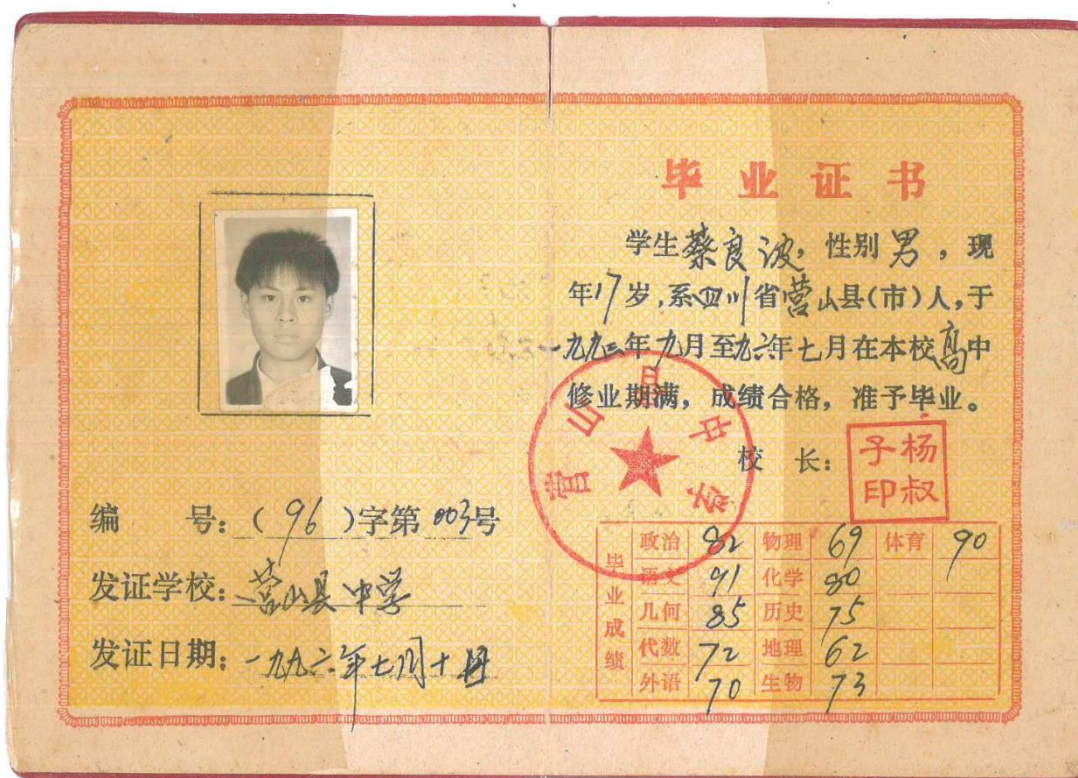 毕业证书
学生蔡良波,性别男,现
年17岁,系四川省营山县(市)人,于
一九九三年九月至九六年七月在本校高中
修业期满,成绩合格,准予毕业。
校长:
杨叔子印
营山县中学
编号:(96)字第003号
发证学校:营山县中学
发证日期:一九九六年七月十日
毕业成绩
政治 82 物理 69 体育 90
语文 91 化学 80
几何 85 历史 75
代数 72 地理 62
外语 70 生物 73